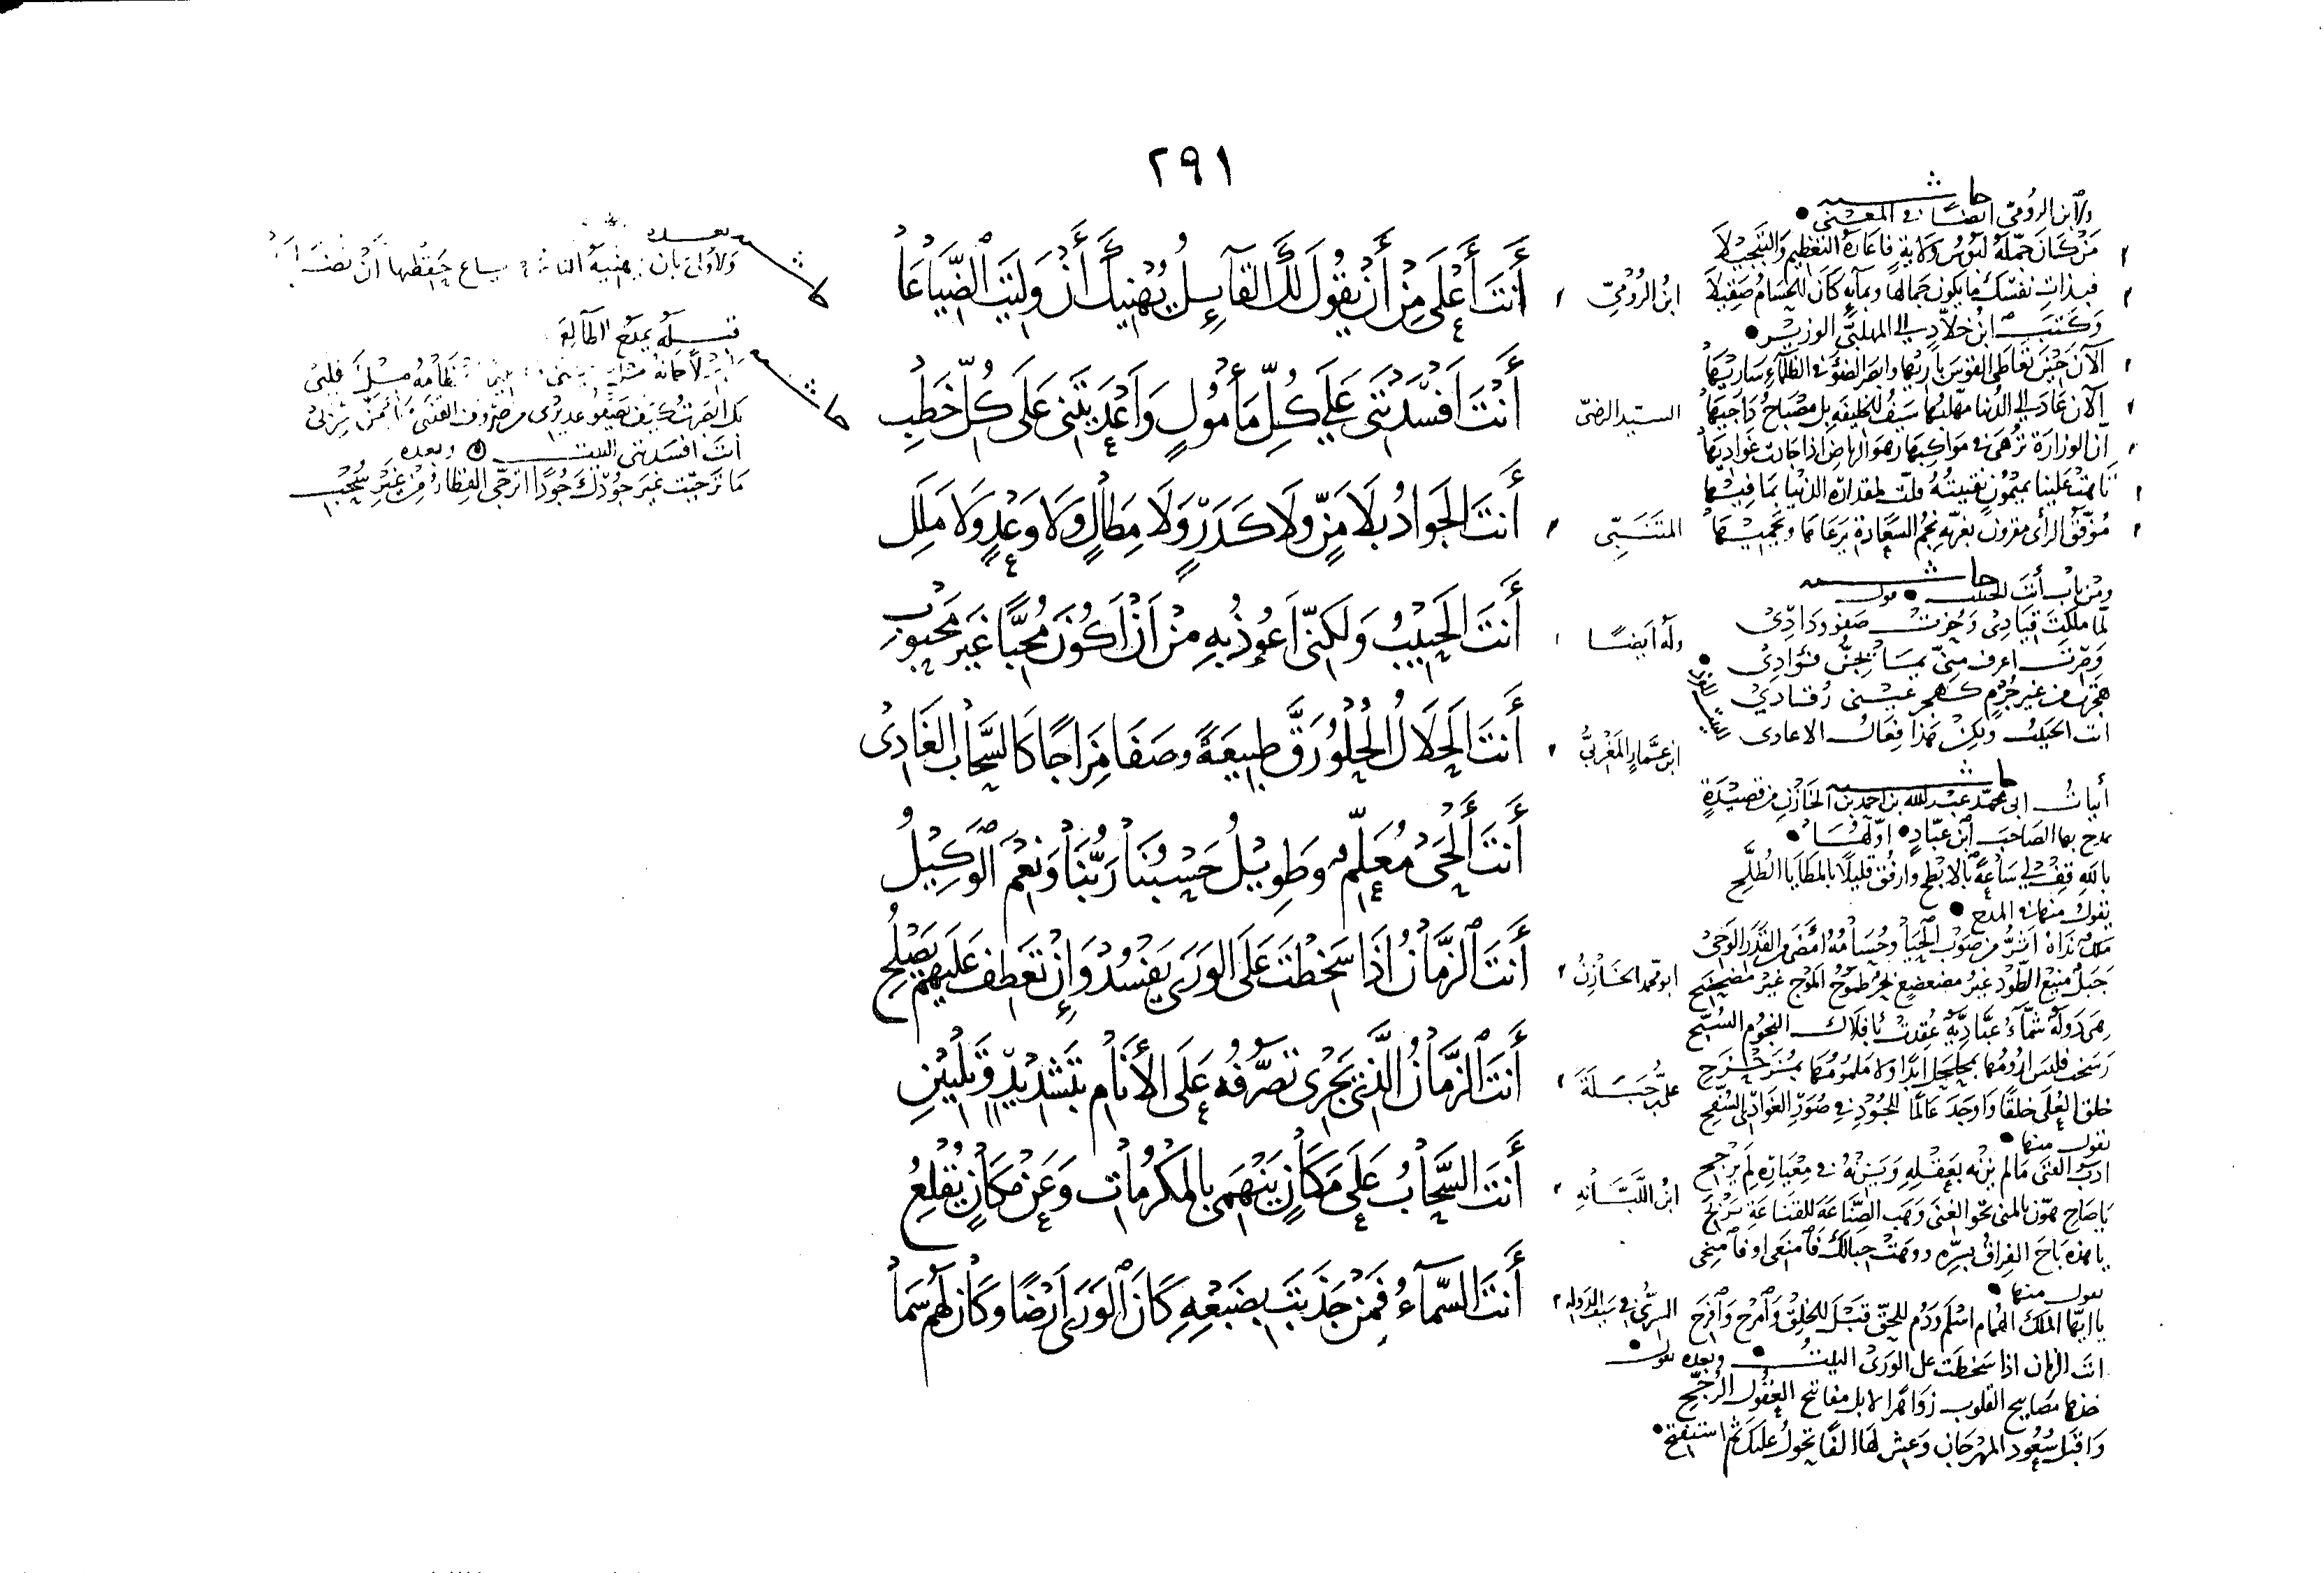 ٢٩١
أَنتَ أَعْلَى مِنْ أَنْ يَقُولَ لَكَ القَآئِلُ يُهْنِيكَ أَنْ وَلِيتَ الضِّيَاعَا
ابنُ الرُّومِيّ
أَنْتَ اَفْسَدْتَنِى عَلَى كُلِّ مَأْمُولٍ وَاَعْدَيْتَنِى عَلَى كُلِّ خَطْبِ
السيد الرضىّ
أَنتَ الجَوَادُ بِلَا مَنٍّ وَلَا كَدَرٍ وَلَا مِطَالٍ وَلَا وَعْدٍ وَلَا مَلَلِ
المتَنَبِّى
أَنتَ الحَبِيْبُ وَلَكِنِّى اَعُوْذُ بِهِ مِنْ اَنْ اَكُوْنَ مُحِبًّا غَيْرَ مَحْبُوْبِ
وله اَيضًا
أَنتَ الحَلَالُ الحُلْوُ رَقَّ طَبِيعَةً وصَفَا مِزَاجًا كَالسَّحَابِ الغَادِى
ابن عمَّارٍ المَغْرِبىُّ
أَنتَ أَلْحَىْ مُعَلِّمٌ وَطَوِيْلٌ حَسْبُنَا رَبُّنَا وَنِعْمَ الوَكِيْلُ
أَنتَ الزَّمَانُ اذَا سَخِطْتَ عَلَى الوَرَى يَفْسُدْ وَإِنْ تَعْطِفْ عَلَيهِمْ يَصْلُحِ
ابو محمد الخَازِنُ
أَنتَ الزَّمَانُ الَّذِى يَجْرِى تَصَرُّفُهُ عَلَى الأَنَامِ بِتَشْدِيْدٍ وَتَلْيِيْنِ
علىُّ بن جَبَلَةَ
أَنتَ السَّحَابُ عَلَى مَكَانٍ يَنْهَمِى بِالمَكْرُمَاتِ وَعَنْ مَكَانٍ يُقْلِعُ
ابنُ اللَّبَّانَةِ
أَنتَ السَّمَآءُ فَمَنْ جَذَبْتَ بِضَبْعِهِ كَانَ الوَرَى اَرْضًا وَكَانَ لَهُمْ سَمَا
السرىُّ فى سيف الدوله
حاشيه
ولابن الرُّومىّ ايضًا فى المعنى
مَنْ كَانَ جَمَّلَهُ لَبُوْسُ وِلَايةٍ فَاعَارَهُ التعْظِيمَ وَالتَّبْجِيْلَا
فبذاتِ نفسِكَ مَا يكون جَمالهَا وبمآئهِ كَانَ الحُسَامُ صَقِيْلَا
وَكَتَبَ ابنُ خلاّدٍ الى المهلَّبىّ الوزير
الآنَ حِيْنَ تعَاطَى القوسَ بَارِيْهَا وابصَر الضوْءَ فى الظلْمآءِ سَارِيْهَا
الآن عَادَ الى الدُنيا مهلبُها سَيْفُ الخليفةِ بل مصْبَاحُ دَاجِيْهَا
ان الوزارة تُزهَى فى مَوَاكبهَا
تَاهَتْ علينا بميْمُونٍ نقيبتُهُ قلّت لمقدارِهِ الدُنْيا بمَا فِيْهَا
مُوفّقُ الرأىِ مقرون بغرّتهِ نجم السعَادة يَرعَاهَا ويحْمِيْهَا
حاشيه
ومن باب أنتَ الحبيب
لمّا ملكتَ قِيَادِىْ وَحُزتَ صَفو ودَادِىْ
وَصِرْتَ اعرف مِنّى بمَا يُجِنُّ فؤادِىْ
هجرت من غير جُرْمٍ كهجر عيْنى رُقَادِىْ
انت الحبيبُ ولكِنْ هَذَا فعَالُ الاعادى
حاشيه
أبياتُ ابى محمّد عبد الله بن احمد بن الخازنِ من قصيْدَةٍ
يمدح بها الصَاحبَ ابنَ عبّادٍ اوّلهَا
باللهِ قِفْ لى سَاعةً بالابْطحِ وارفُقْ قليلًا بالمطَايا الطُلَّحِ
يقولُ منها فى المدح
جَبَلٌ منيْعُ الطَوْدِ غيْرُ مضعضَعٍ
هِىَ دَولَةٌ شمّآءُ عبَّاديّةٌ عُقِدتْ بافلَاكِ النجُومِ السُبَّحِ
خلق العُلَى خلقًا وَاوجَدَ عالمًا للجُوْدِ
يقول منها
ادَبُ الفتى مَالم يزنْه بعَقْلِهِ وَيَزِنْهُ فى مِعْيَارِهِ لم يَرْجَحِ
يَاصَاحِ هوّن بالمنى نحو الغِنَى وَهَب الصِنَاعَةَ للقنَاعَةِ
يا هذه بَاحَ الفِراقُ بسِرّهِ
يقول منها
يا ايّها الملك الهُمام اسْلَم ودُم للحقّ قبْلَ الخلِقْ وَامْرح وافرَحِ
انتَ الزمان اذا سَخطتَ على الورَى البيتُ وبعده يقول
خذها مصَابيح القلوبِ زوَاهرا لا بل مفاتيح العقُولِ الرُجَّحِ
وَاقبَل سُعُود المهرجَانِ وَعِش لهَا الفًا تحولُ عليك ثم استفتح
حاشيه
بعده
وَلأولىٰ بان
حاشيه
قبله يمدَح الطآئِعَ
انتَ افسَدْتنى البيت وبعده
مَا تَرجّيت غيرَ جُوْدِكَ جُودًا اتُرَجّى القِطَارُ مِنْ غيْرِ سُحْبِ